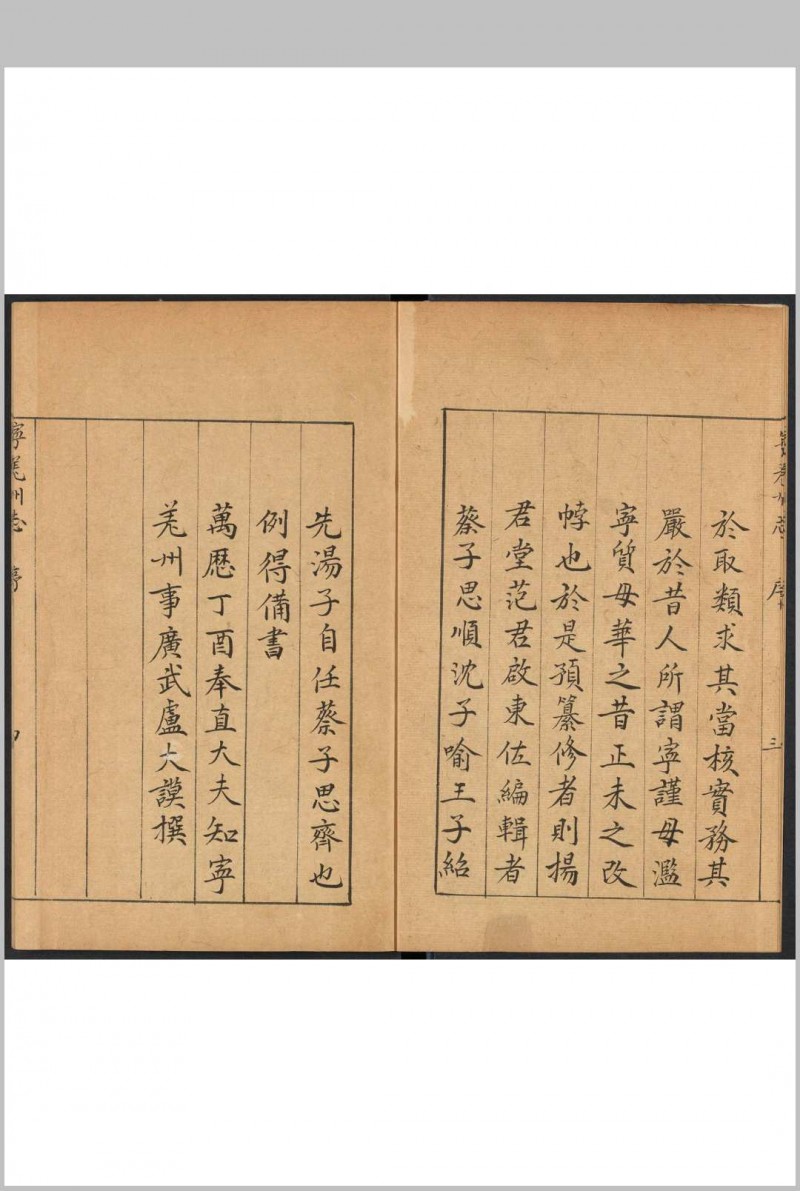 寧羌州志 序 三
於取類求其當核實務其
嚴於昔人所謂寧謹毋濫
寧質毋華之昔正未之改
悖也於是預纂修者則揚
君堂范君啟東佐編輯者
蔡子思順沈子喻王子紹
先湯子自任蔡子思齊也
例得備書
萬歷丁酉奉直大夫知寧
羌州事廣武盧大謨撰
寧羌州志 序